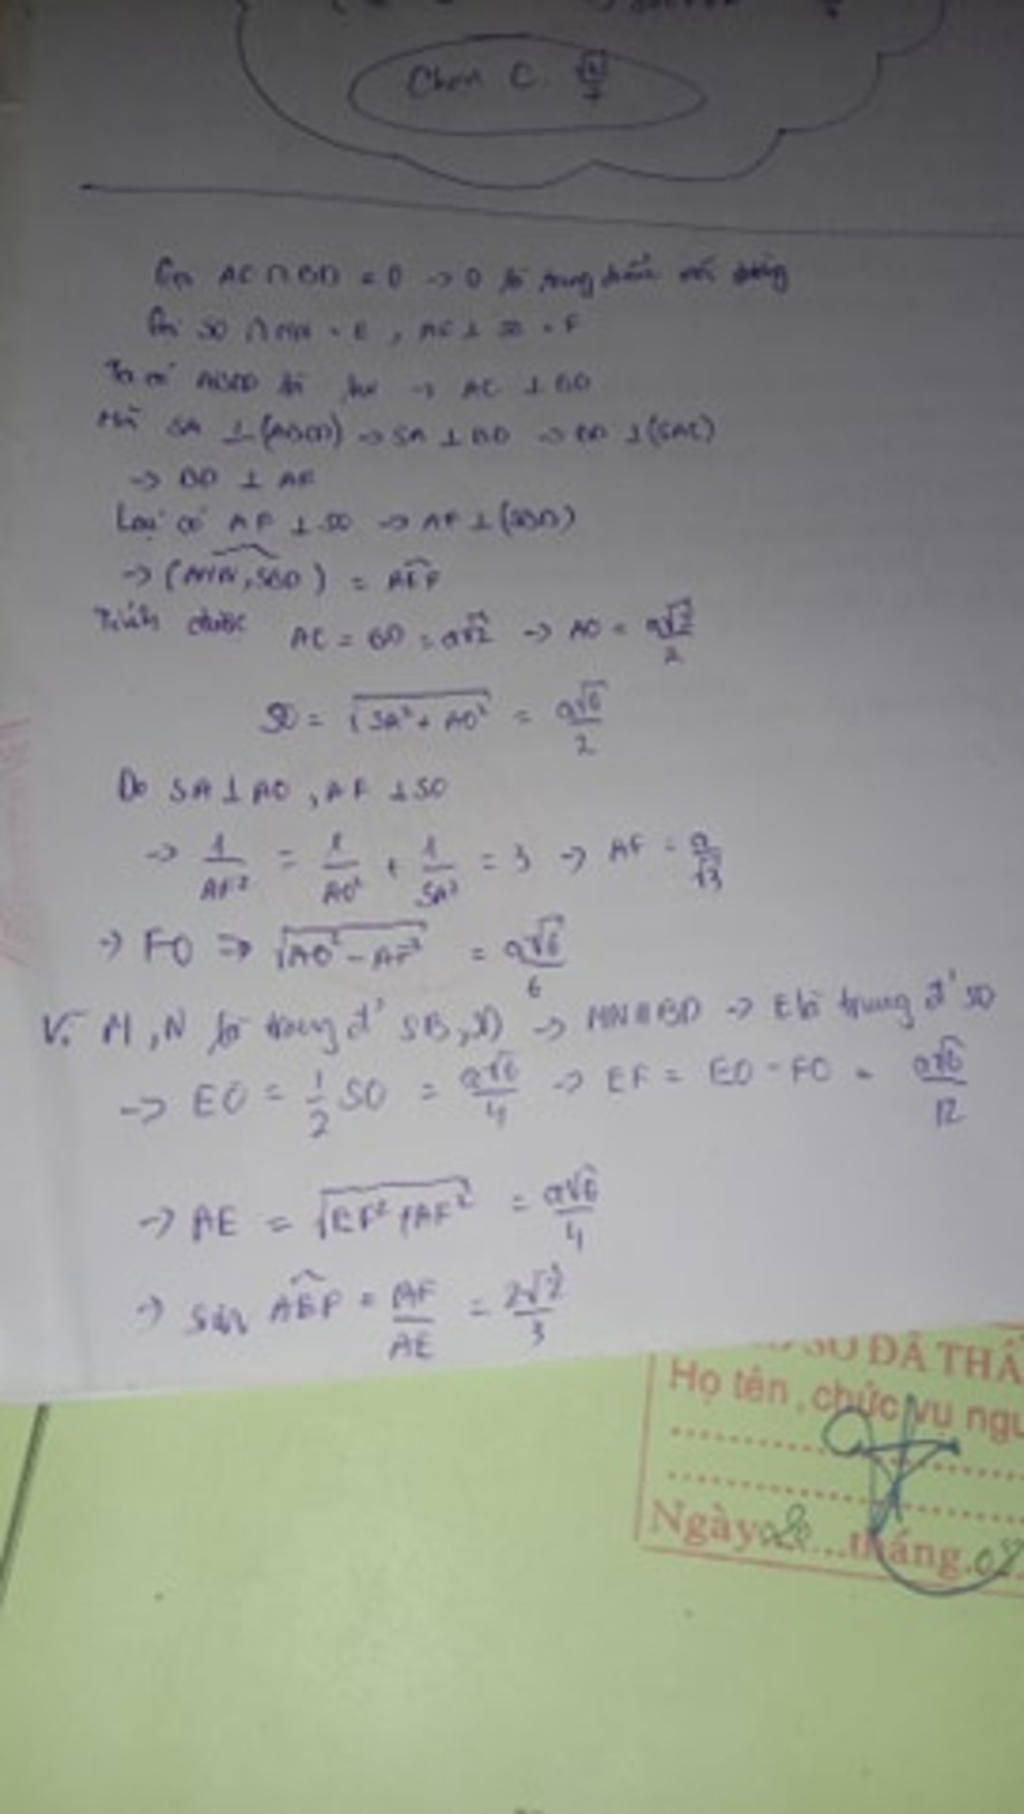 Chọn C.
Gọi AC ∩ BD = O → O là trung điểm mỗi đường
Gọi SO ∩ MN = E, AF ⊥ SO = F
Ta có ABCD là hv → AC ⊥ BD
Mà SA ⊥ (ABCD) → SA ⊥ BD → BD ⊥ (SAC)
→ BD ⊥ AF
Lại có AF ⊥ SO → AF ⊥ (SBD)
→ (AMN, SBD) = AEF
Tính được AC = BD = a√2 → AO = a√2/2
SO = √(SA² + AO²) = a√6/2
Do SA ⊥ AO, AF ⊥ SO
→ 1/AF² = 1/AO² + 1/SA² = 3 → AF = a/√3
→ FO => √(AO² - AF²) = a√6/6
Vì M, N là trung đ' SB, SD → MN // BD → E là trung đ' SO
→ EO = 1/2 SO = a√6/4 → EF = EO - FO = a√6/12
→ AE = √(EF² + AF²) = a√6/4
→ sin AEF = AF/AE = 2√2/3
SƠ ĐÃ THẨ
Họ tên, chức vụ ngư
Ngày 20 ... tháng. 02